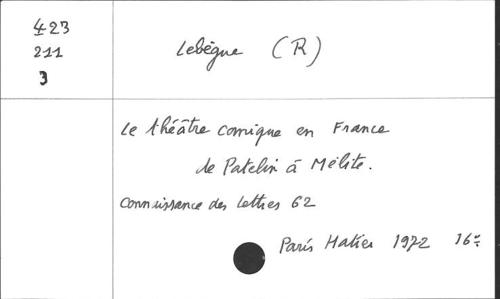 423
211
3
Lebègue (R)
Le théâtre comique en France
de Patelin à Mélite.
Connaissance des Lettres 62
Paris Hatier 1972 16º